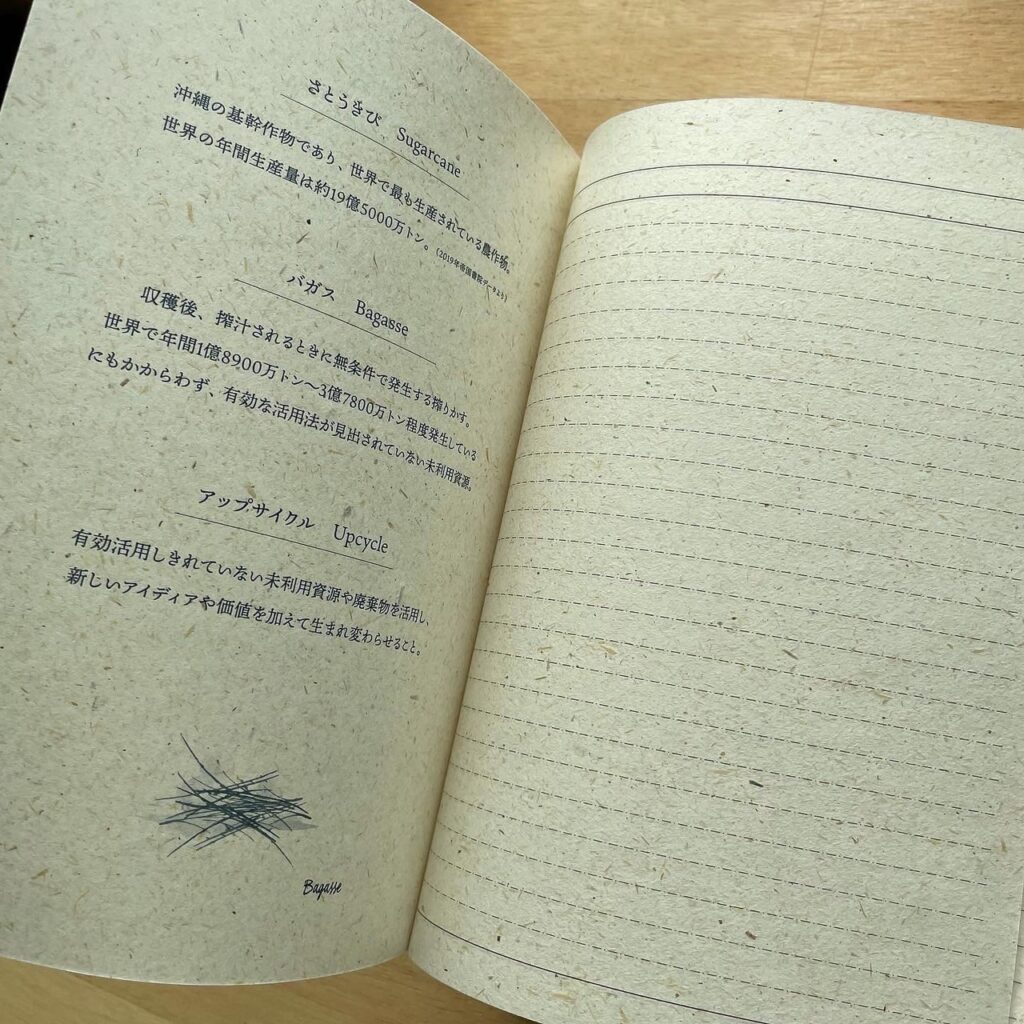 さとうきび Sugarcane
沖縄の基幹作物であり、世界で最も生産されている農作物。
世界の年間生産量は約19億5000万トン。(2019年帝国書院データより)
バガス Bagasse
収穫後、搾汁されるときに無条件で発生する搾りかす。
世界で年間1億8900万トン〜3億7800万トン程度発生している
にもかからわず、有効な活用法が見出されていない未利用資源。
アップサイクル Upcycle
有効活用しきれていない未利用資源や廃棄物を活用し、
新しいアイディアや価値を加えて生まれ変わらせること。
Bagasse